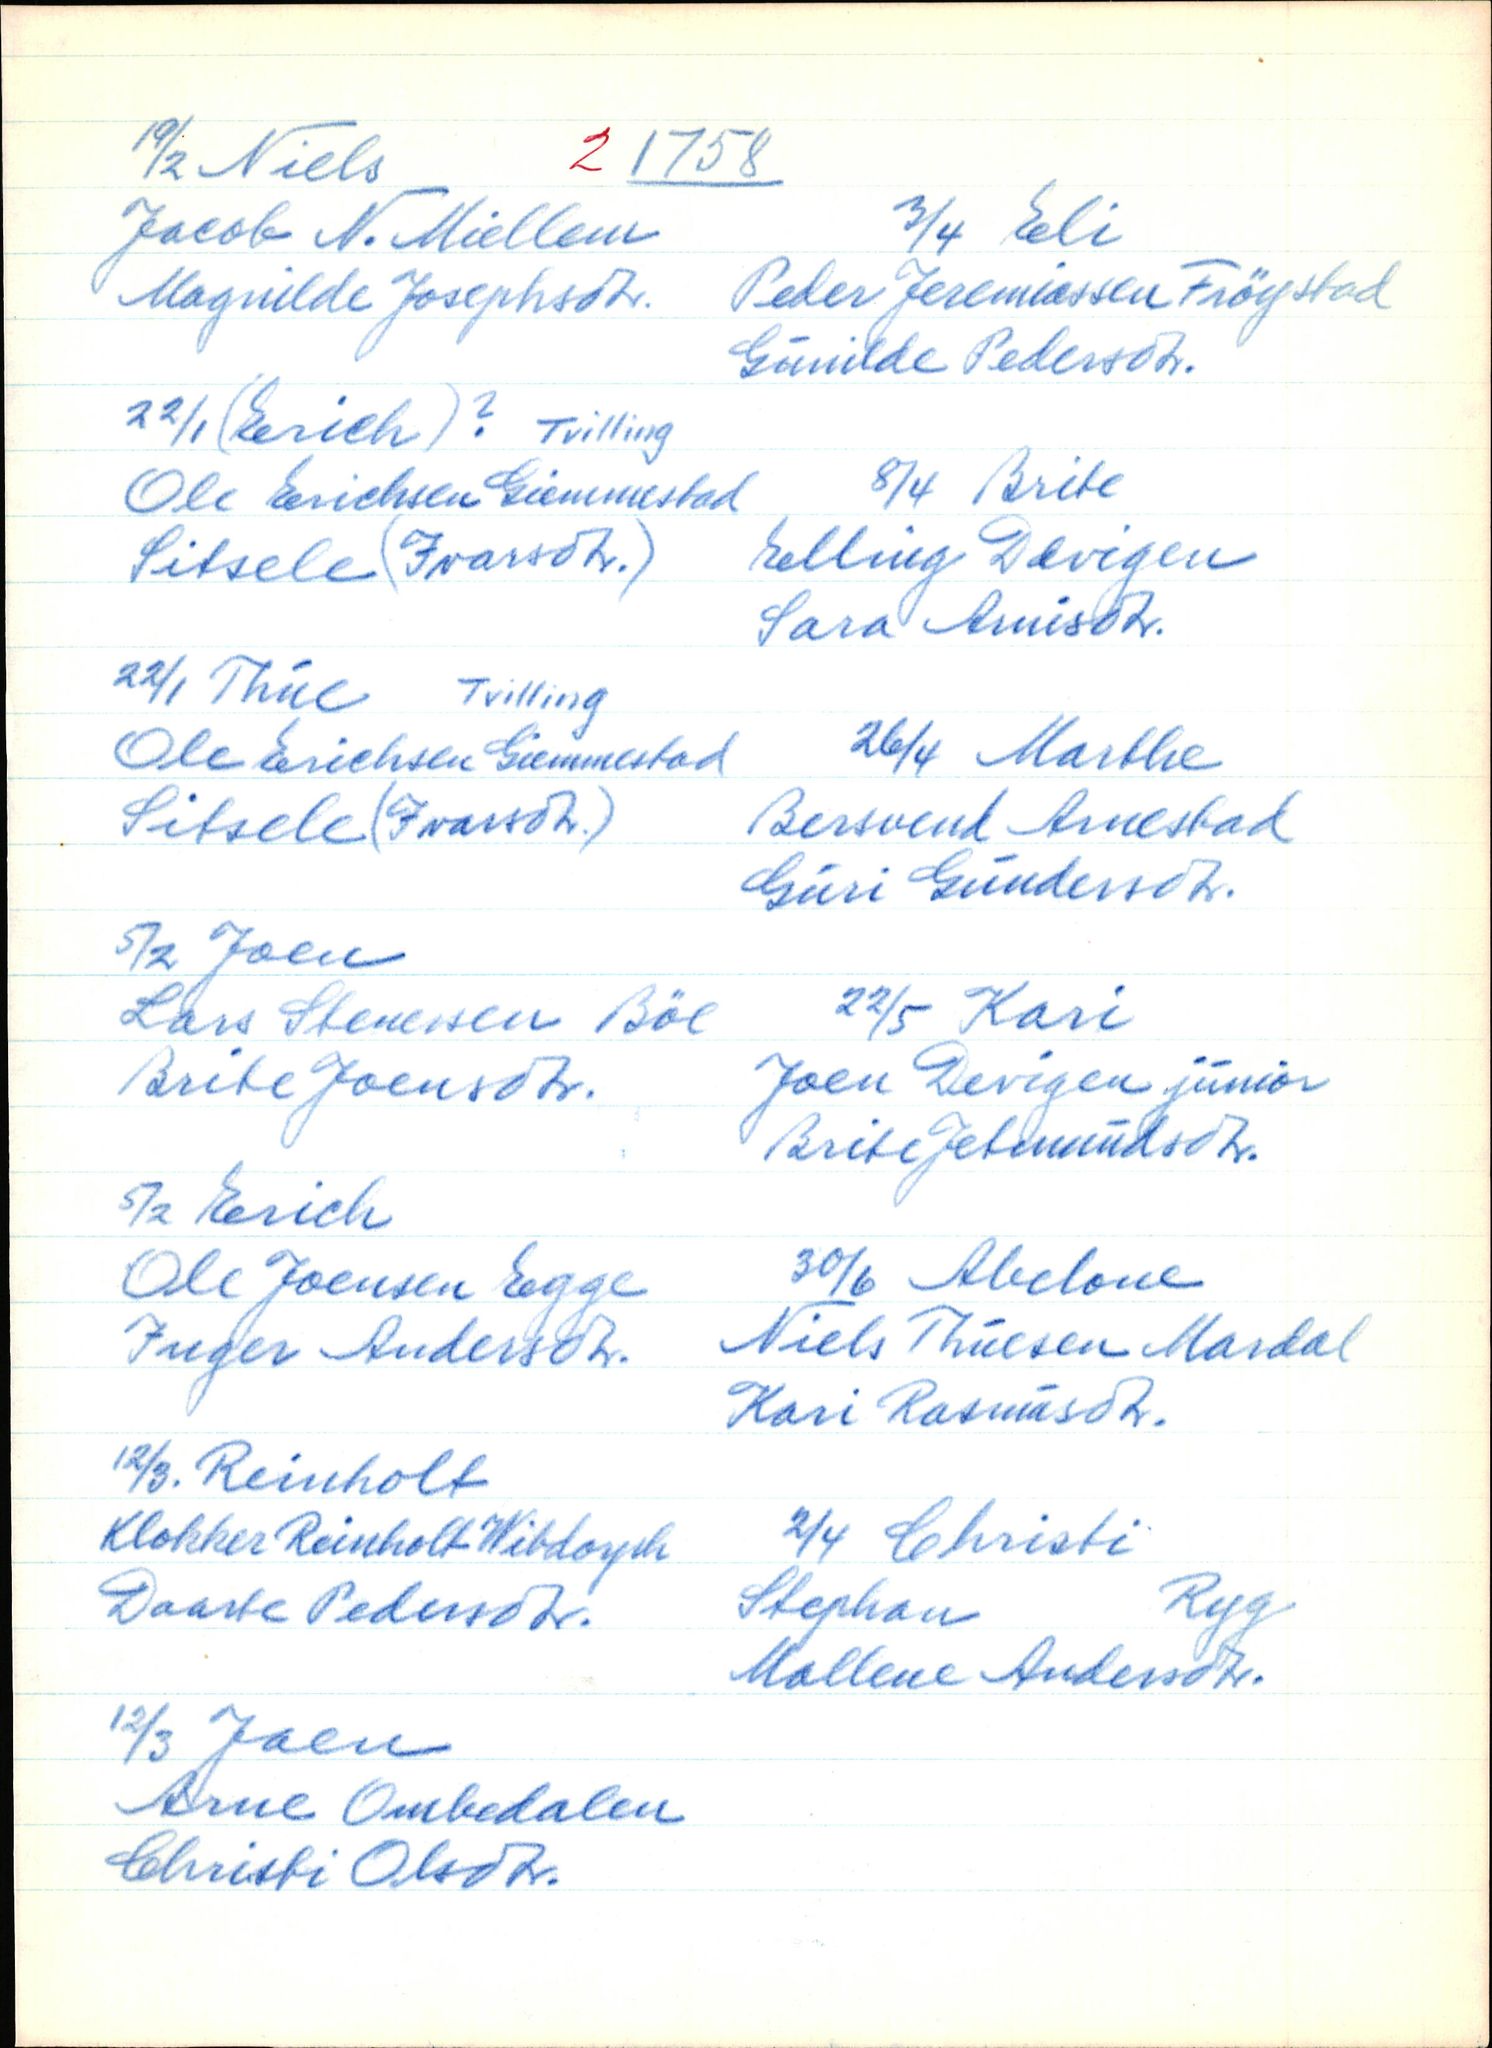 19/2 Niels 2 1758
Jacob N. Miellem
Magnilde Josephsdtr.
22/1 (Erich)? Tvilling
Ole Erichsen Giemmestad
Sitsele (Ivarsdtr.)
22/1 Thúe Tvilling
Ole Erichsen Giemmestad
Sitsele (Ivarsdtr.)
5/2 Joen
Lars Stenersen Böe
Brite Joensdtr.
5/2 Erich
Ole Joensen Egge
Inger Andersdtr.
12/3. Reinholt
Klokker Reinholt Wibdorph
Daarte Pedersdtr.
12/3 Joen
Arne Ombedalen
Christi Olsdtr.
3/4 Eli
Peder Jeremiassen Fröystad
Gúnilde Pedersdtr.
8/4 Brite
Elling Devigen
Sara Arnisdtr.
26/4 Marthe
Bersvend Arnestad
Gúri Gúndersdtr.
22/5 Kari
Joen Devigen júnior
Brite Jetmúndsdtr.
30/6 Abelone
Niels Thúesen Mardal
Kari Rasmúsdtr.
2/4 Christi
Stephan Ryg
Mallene Andersdtr.